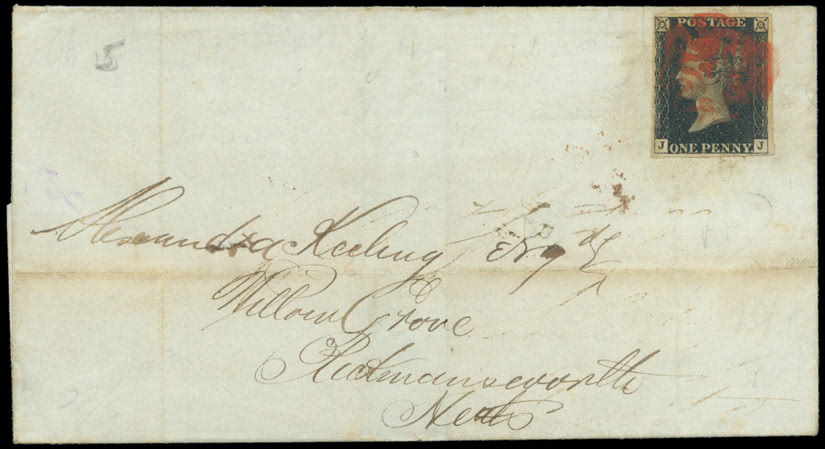 POSTAGE
ONE PENNY.
J J
5
Alexander Keeling Esqre
Willow Grove
Rickmansworth
Herts